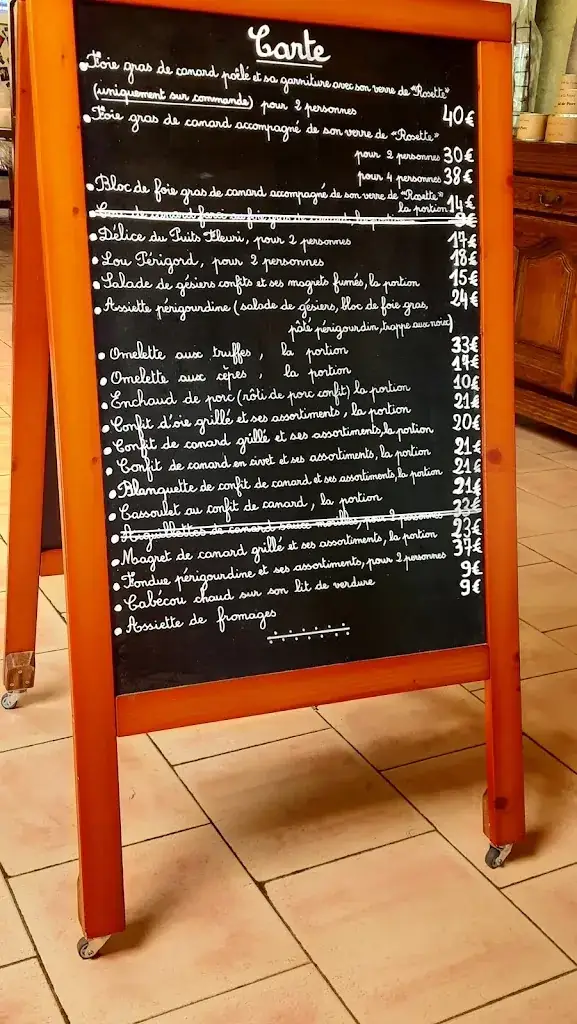 Carte
• Foie gras de canard poêlé et sa garniture avec son verre de "Rosette"
(uniquement sur commande) pour 2 personnes 40€
• Foie gras de canard accompagné de son verre de "Rosette"
pour 2 personnes 30€
pour 4 personnes 38€
• Bloc de foie gras de canard accompagné de son verre de "Rosette"
la portion 14€
• Cou de canard farci au foie gras de canard, la portion 9€
• Délice du Puits Fleuri, pour 2 personnes 17€
• Lou Périgord, pour 2 personnes 18€
• Salade de gésiers confits et ses magrets fumés, la portion 15€
• Assiette périgourdine (salade de gésiers, bloc de foie gras, 24€
pâté périgourdin, trappe aux noix)
• Omelette aux truffes, la portion 33€
• Omelette aux cèpes, la portion 17€
• Enchaud de porc (rôti de porc confit) la portion 10€
• Confit d'oie grillé et ses assortiments, la portion 21€
• Confit de canard grillé et ses assortiments, la portion 20€
• Confit de canard en civet et ses assortiments, la portion 21€
• Blanquette de confit de canard et ses assortiments, la portion 21€
• Cassoulet au confit de canard, la portion 21€
• Aiguillettes de canard sauce morilles, pour 2 personnes 22€
• Magret de canard grillé et ses assortiments, la portion 23€
• Fondue périgourdine et ses assortiments, pour 2 personnes 37€
• Cabécou chaud sur son lit de verdure 9€
• Assiette de fromages 9€